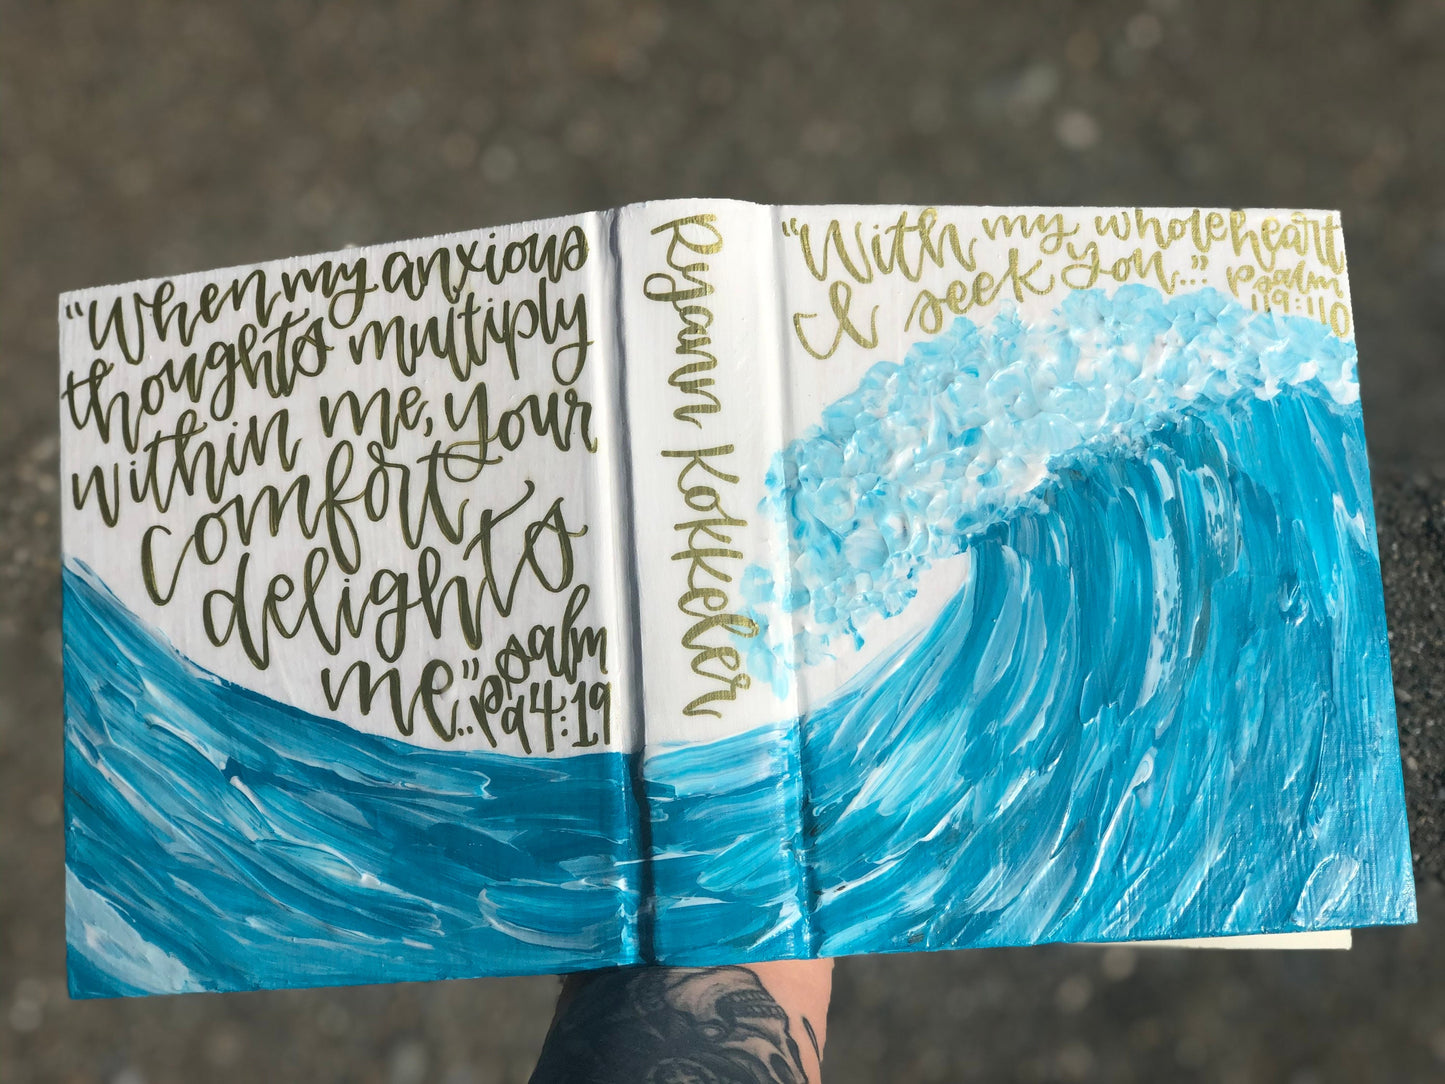 "When my anxious
thoughts multiply
within me, your
comfort
delights
me."
..psalm
94:19
Ryann Kokkeler
"With my whole heart
I seek you..."
psalm
119:110